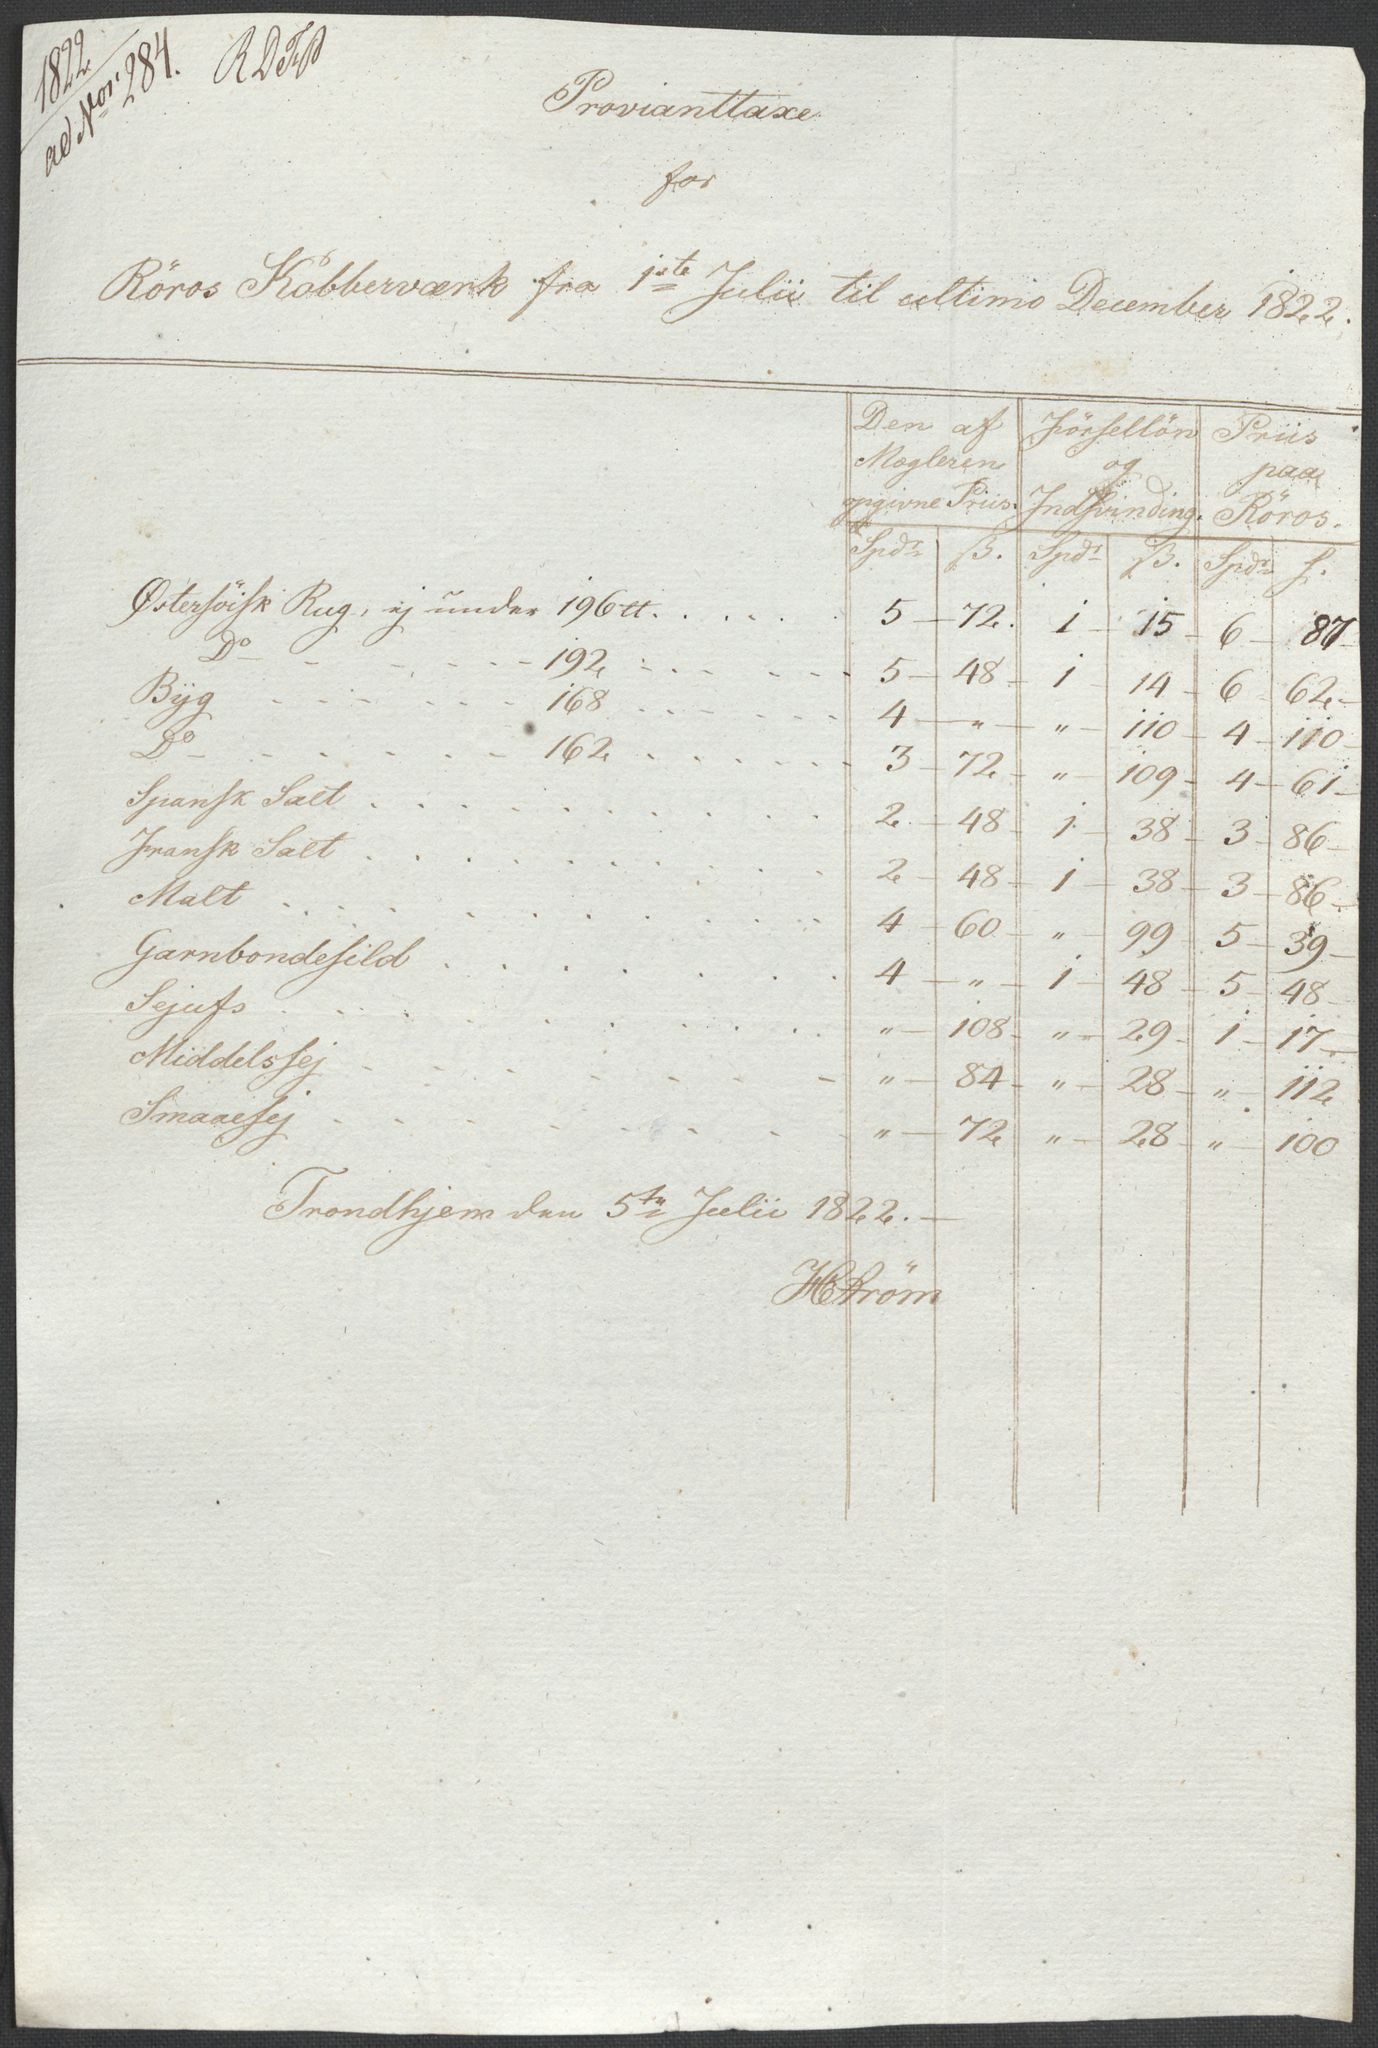 1822
ad Nor: 284.
Provianttaxe
for
Röros Kobberværk fra 1ste Julii til ultimo December 1822.
Den af Mægleren opgivne Priis. | Förselslön og Indsvinding. | Priis paa Röros.
Spdr | ß. | Spdr | ß. | Spdr | ß.
Østersöisk Rug, ej under 196 tt. . . . . . 5 — 72. 1 — 15 — 6 — 87 —
Do — - - - - - 192 - - - - - 5 — 48 — 1 — 14 — 6 — 62 —
Byg - - - - - - 168 - - - - - 4 — „ — „ — 110 — 4 — 110 —
Do — - - - - - 162 . . . . . . 3 — 72 — „ — 109 — 4 — 61 —
Spansk Salt . . . . . . . . . 2 — 48 — 1 — 38 — 3 — 86 —
Fransk Salt . . . . . . . . . 2 — 48 — 1 — 38 — 3 — 86 —
Malt . . . . . . . . . . . 4 — 60 — „ — 99 — 5 — 39 —
Garnbondesild . . . . . . . . 4 — „ — 1 — 48 — 5 — 48 —
Sejufs . . . . . . . . . . „ — 108 — „ — 29 — 1 — 17 —
Middelssej - - - - - - - - „ — 84 — „ — 28 — „ — 112
Smaaesej - - - - - - - - „ — 72 — „ — 28 — „ — 100
Trondhjem den 5te Julii 1822. —
HStröm